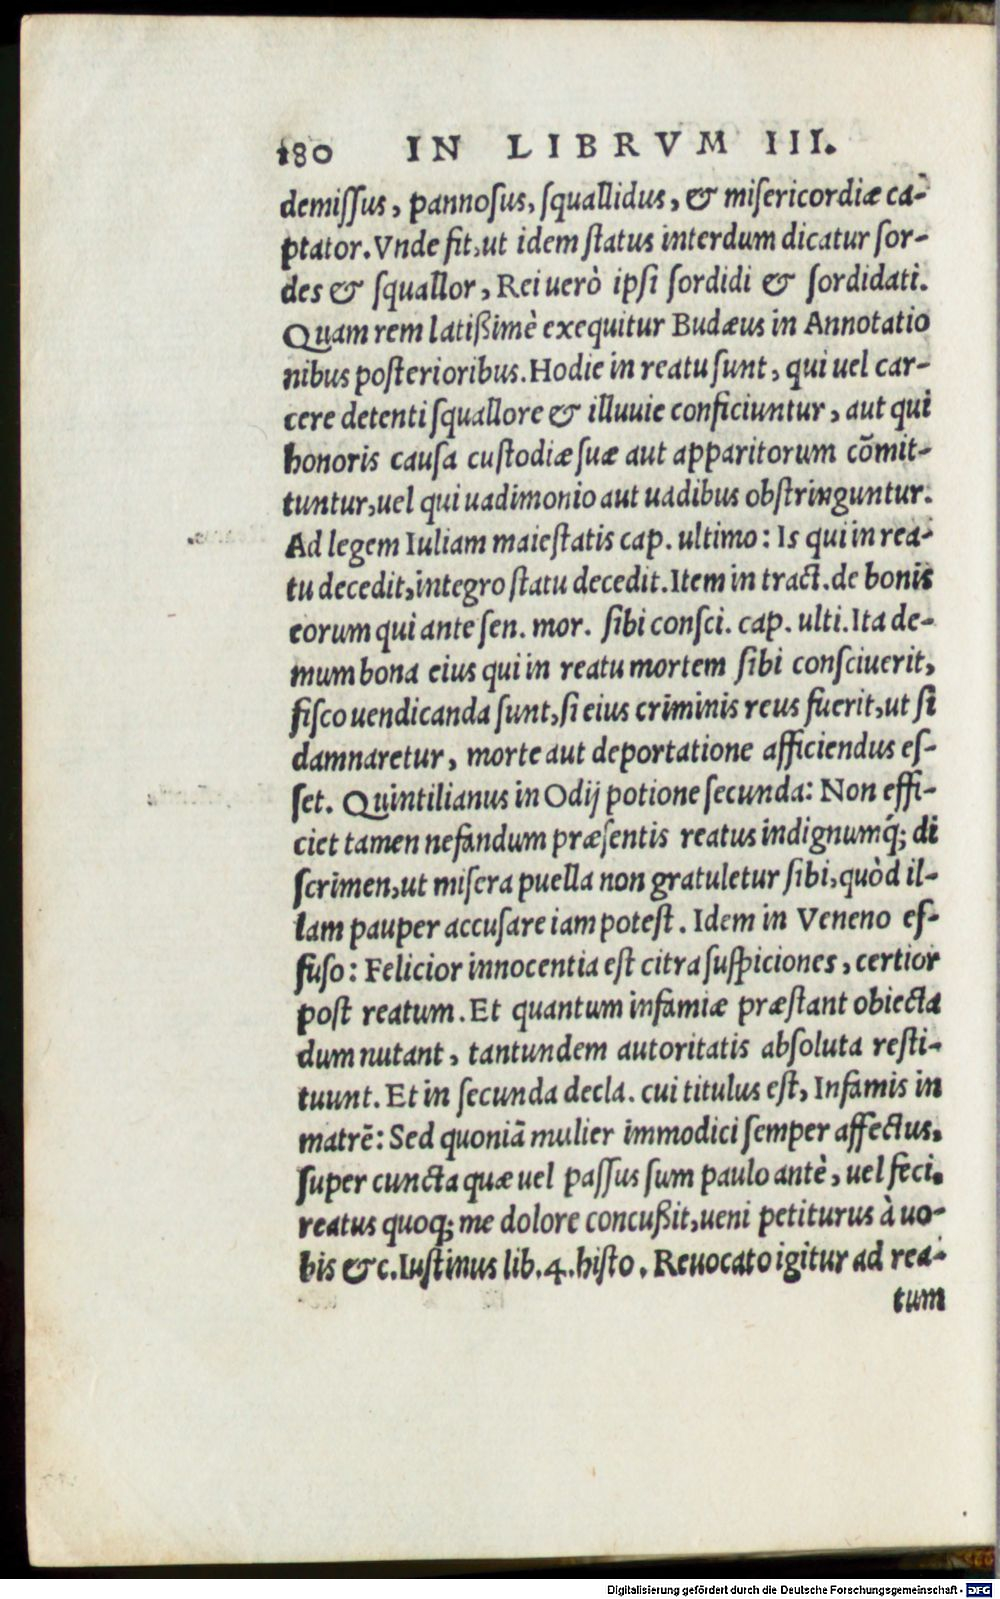 180 IN LIBRVM III.
demiſſus, pannoſus, ſquallidus, & miſericordiæ ca-
ptator. Vnde fit, ut idem ſtatus interdum dicatur ſor-
des & ſquallor, Rei uerò ipſi ſordidi & ſordidati.
Quam rem latißimè exequitur Budæus in Annotatio
nibus poſterioribus. Hodie in reatu ſunt, qui uel car-
cere detenti ſquallore & illuuie conficiuntur, aut qui
honoris cauſa cuſtodiæ ſuæ aut apparitorum cõmit-
tuntur, uel qui uadimonio aut uadibus obſtringuntur.
Ad legem Iuliam maieſtatis cap. ultimo: Is qui in rea-
tu decedit, integro ſtatu decedit. Item in tract. de bonis
eorum qui ante ſen. mor. ſibi conſci. cap. ulti. Ita de-
mum bona eius qui in reatu mortem ſibi conſciuerit,
fiſco uendicanda ſunt, ſi eius criminis reus fuerit, ut ſi
damnaretur, morte aut deportatione afficiendus eſ-
ſet. Quintilianus in Odij potione ſecunda: Non effi-
ciet tamen nefandum præſentis reatus indignumq́; di
ſcrimen, ut miſera puella non gratuletur ſibi, quòd il-
lam pauper accuſare iam poteſt. Idem in Veneno ef-
fuſo: Felicior innocentia eſt citra ſuſpiciones, certior
poſt reatum. Et quantum infamiæ præſtant obiecta
dum nutant, tantundem autoritatis abſoluta reſti-
tuunt. Et in ſecunda decla. cui titulus eſt, Infamis in
matrẽ: Sed quoniã mulier immodici ſemper affectus,
ſuper cuncta quæ uel paſſus ſum paulo antè, uel feci,
reatus quoq; me dolore concußit, ueni petiturus à uo-
bis &c. Iuſtinus lib. 4. hiſto. Reuocato igitur ad rea-
tum
Digitalisierung gefördert durch die Deutsche Forschungsgemeinschaft - DFG